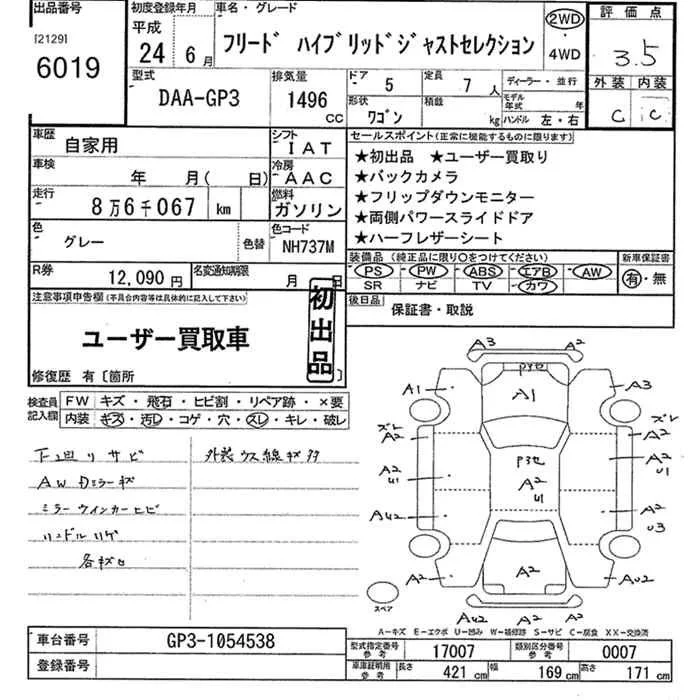 出品番号
[2129]
6019
初度登録年月
平成
24年 6月
車名・グレード
フリード ハイブリッドジャストセレクション
2WD
・
4WD
評価点
3.5
外装 内装
C C
型式
DAA-GP3
排気量
1496
CC
ドア
5
定員
7人
形状
ワゴン
積載
kg
ディーラー・並行
モデル年式 年
ハンドル 左・右
車歴
自家用
シフト
IAT
車検
年 月( 日)
冷房
AAC
走行
8万6千067 km
燃料
ガソリン
色
グレー
色替
色コード
NH737M
R券
12,090円
名変通知期限
月 日
セールスポイント(正常に機能するものに限ります)
★初出品 ★ユーザー買取り
★バックカメラ
★フリップダウンモニター
★両側パワースライドドア
★ハーフレザーシート
装備品(純正品に限り○をつけてください)
PS PW ABS エアB AW
SR ナビ TV カワ
新車保証書
有・無
後日品
保証書・取説
注意事項申告欄(不具合内容等は具体的に記入して下さい)
ユーザー買取車
初出品
修復歴 有〔箇所 〕
検査員記入欄
FW キズ・飛石・ヒビ割・リペア跡・×要
内装 キズ・汚レ・コゲ・穴・スレ・キレ・破レ
下廻りサビ
外装ウス線キズ
AWDミラーキズ
ミラーウィンカーヒビ
各キズ
A3 A2
A1 A1 A3
ズレ A2
ズレ A2
A2 U1
A2 U1
A2 U1
AU2
A2 U3
A2 A2 AU2
AU2 A2 A2
スペア
A-キズ E-エクボ U-凹み W-補修跡 S-サビ C-腐食 XX-交換済
車台番号
GP3-1054538
登録番号
型式指定番号 参考
17007
類別区分番号 参考
0007
車庫証明用 参考
長さ 421cm 幅 169cm 高さ 171cm